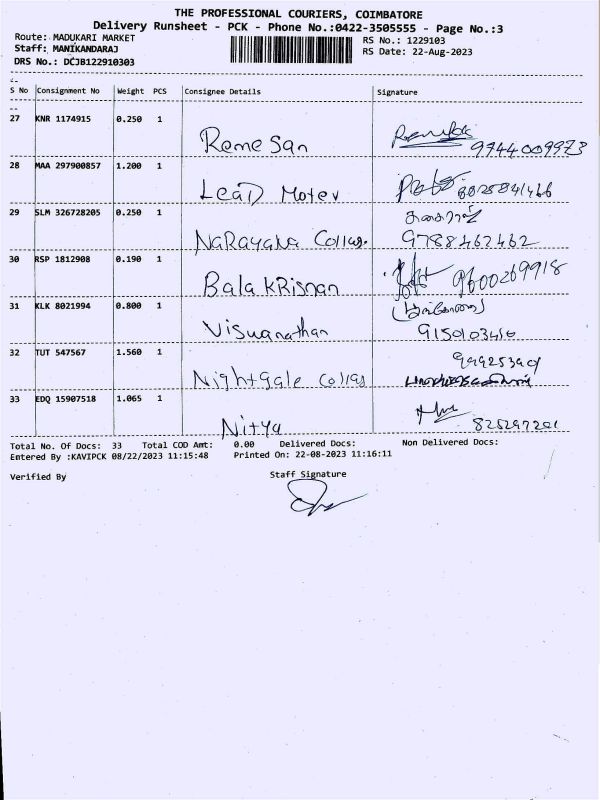 THE PROFESSIONAL COURIERS, COIMBATORE
Delivery Runsheet - PCK - Phone No.:0422-3505555 - Page No.:3
Route: MADUKARI MARKET RS No.: 1229103
Staff: MANIKANDARAJ RS Date: 22-Aug-2023
DRS No.: DCJB122910303
S No Consignment No Weight PCS Consignee Details Signature
27 KNR 1174915 0.250 1
Rame San 9944009973
28 MAA 297900857 1.200 1
Lead Moter
29 SLM 326728205 0.250 1
NaRayana Collag. 9788462462
30 RSP 1812908 0.190 1
Bala KRisnan 9600269918
31 KLK 8021994 0.800 1
Viswanathan
32 TUT 547567 1.560 1
Nightgale Collag
33 EDQ 15907518 1.065 1
Nitya
Total No. Of Docs: 33 Total COD Amt: 0.00 Delivered Docs: Non Delivered Docs:
Entered By :KAVIPCK 08/22/2023 11:15:48 Printed On: 22-08-2023 11:16:11
Verified By Staff Signature